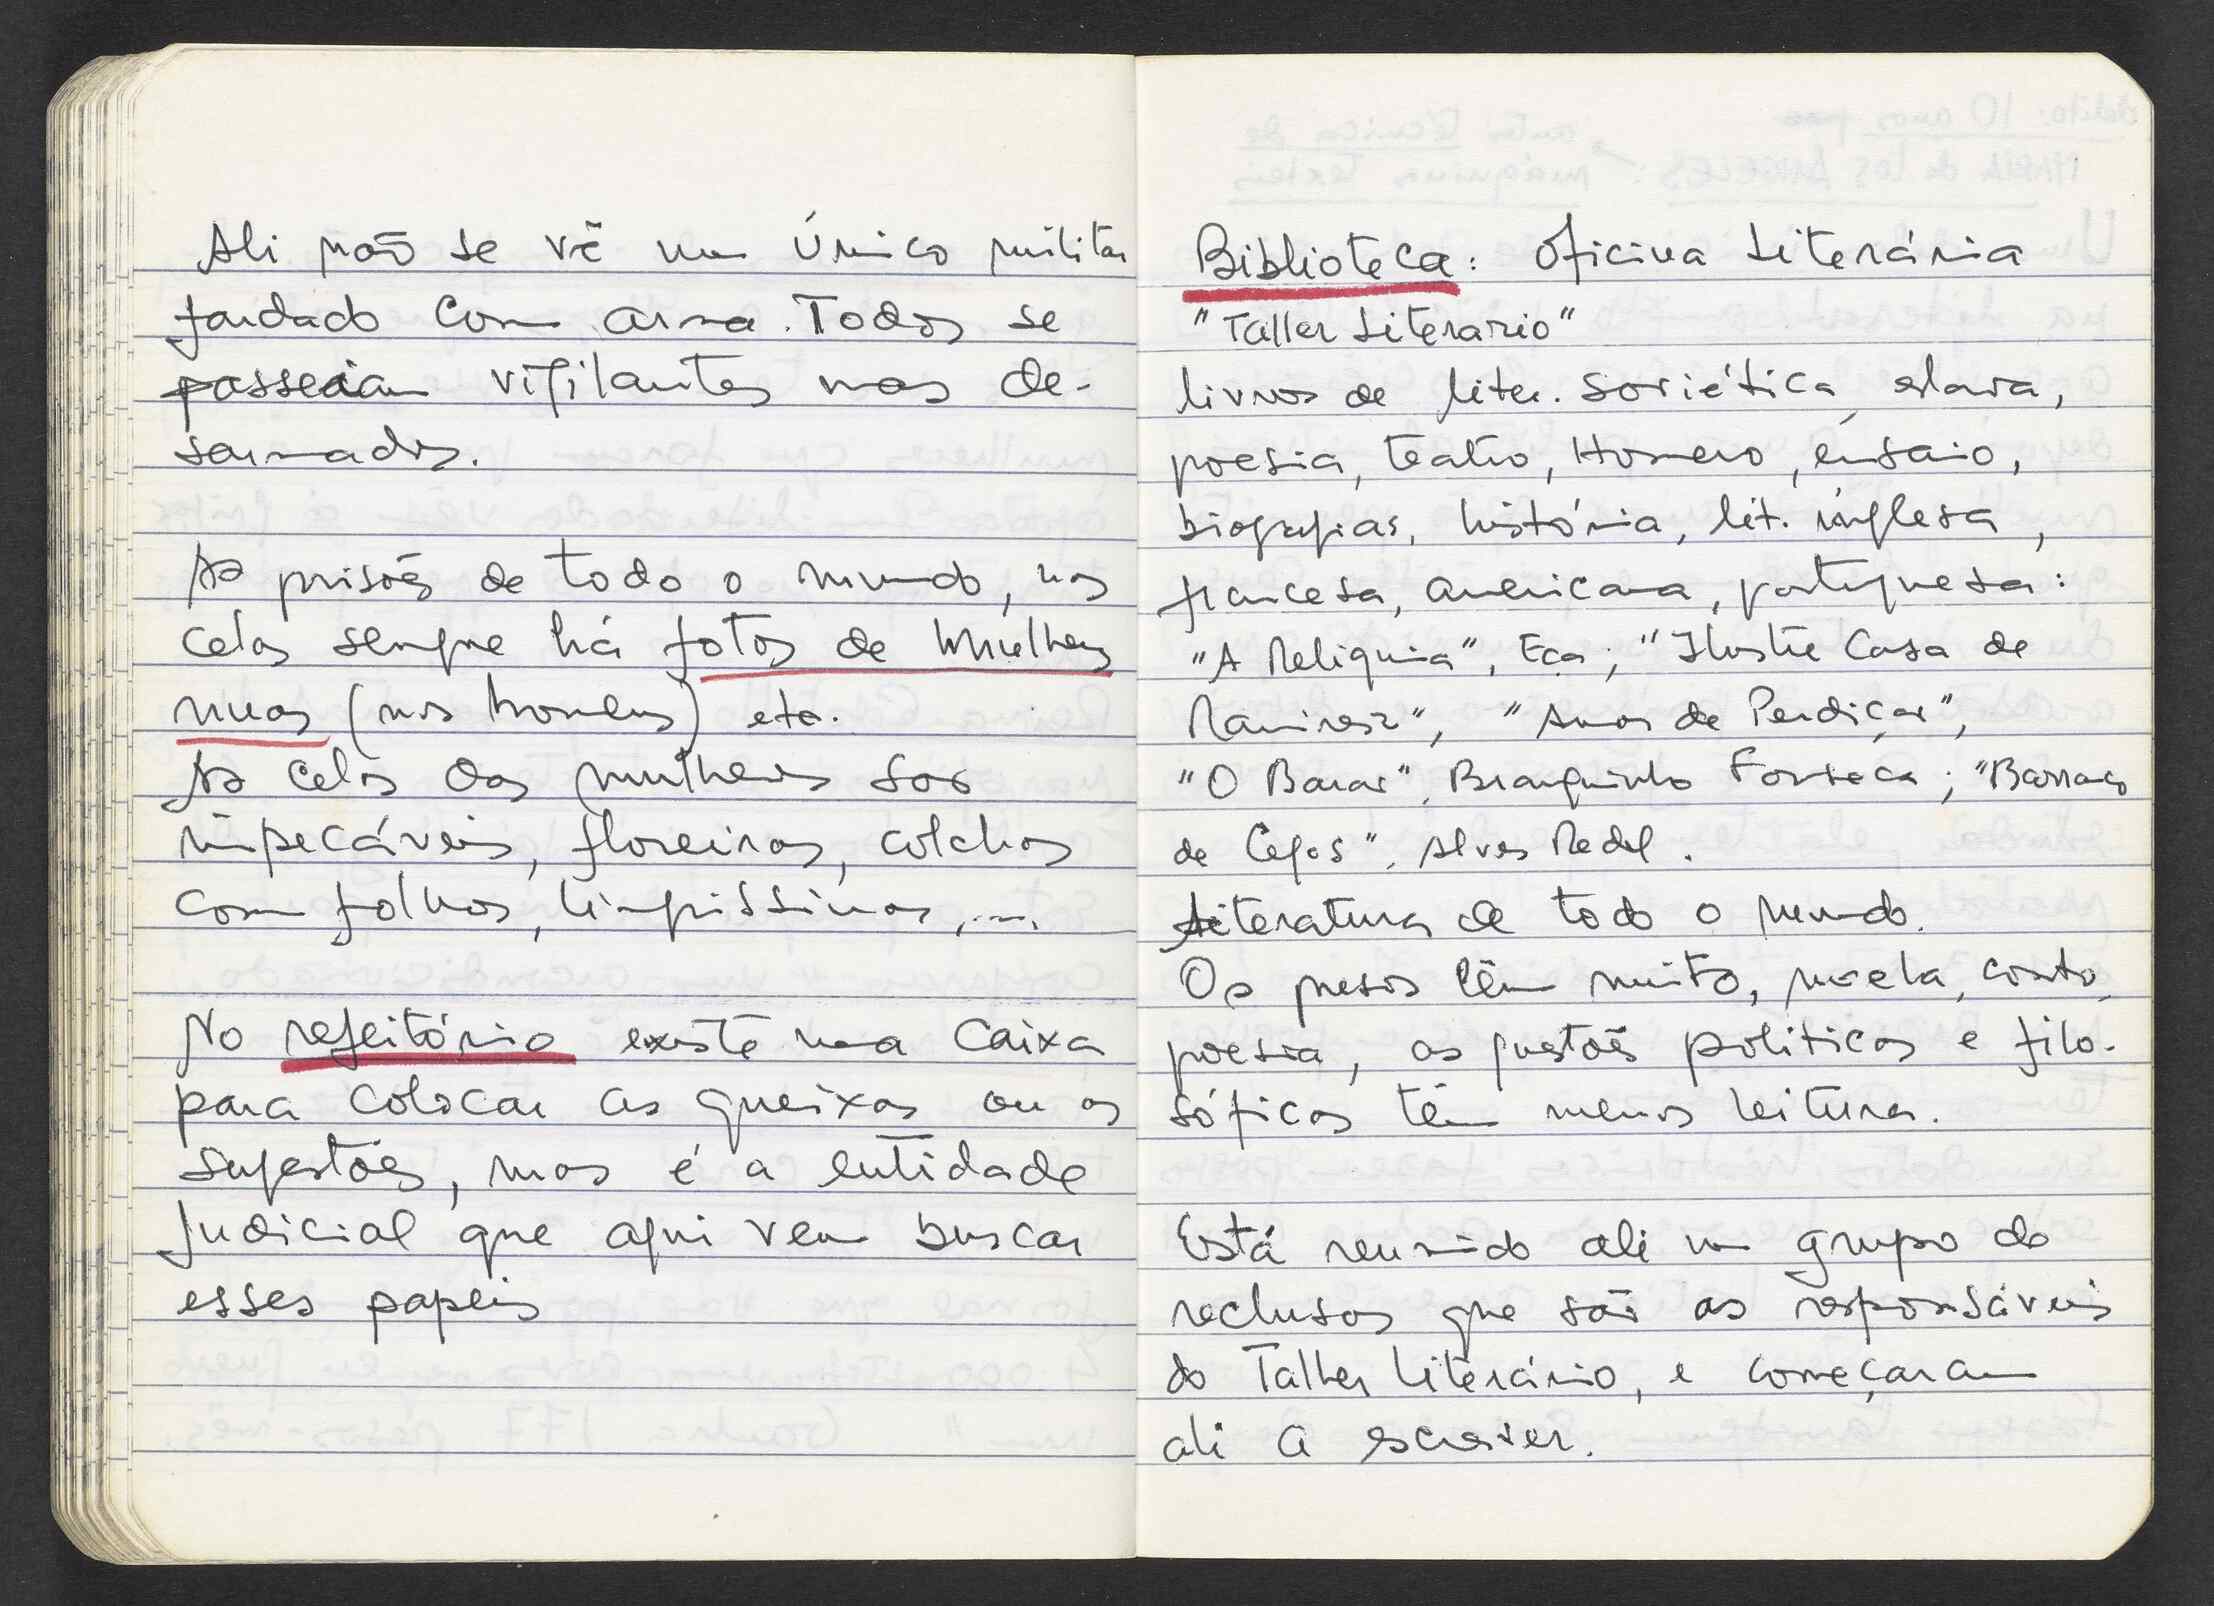 Ali não se vê um único militar
fardado com arma. Todos se
passeiam vigilantes mas de-
sarmados.
As prisões de todo o mundo, nas
celas sempre há fotos de mulheres
nuas (nos homens) etc.
As celas das mulheres são
impecáveis, floreiras, colchas
com folhos, limpíssimas, ...
No refeitório existe uma caixa
para colocar as queixas ou as
sugestões, mas é a entidade
judicial que aqui vem buscar
esses papéis
Biblioteca: Oficina Literária
"Taller Literario"
livros de liter. soviética, eslava,
poesia, teatro, Homero, ensaio,
biografias, história, lit. inglesa,
francesa, americana, portuguesa:
"A Relíquia", Eça; "Ilustre Casa de
Ramires", "Amor de Perdição",
"O Barão", Branquinho Fonseca; "Barranco
de Cegos", Alves Redol.
Literatura de todo o mundo.
Os presos lêm muito, novela, conto,
poesia, as questões políticas e filo-
sóficas têm menos leitura.
Está reunido ali um grupo de
reclusas que são as responsáveis
do Taller Literário, e começaram
ali a escrever.